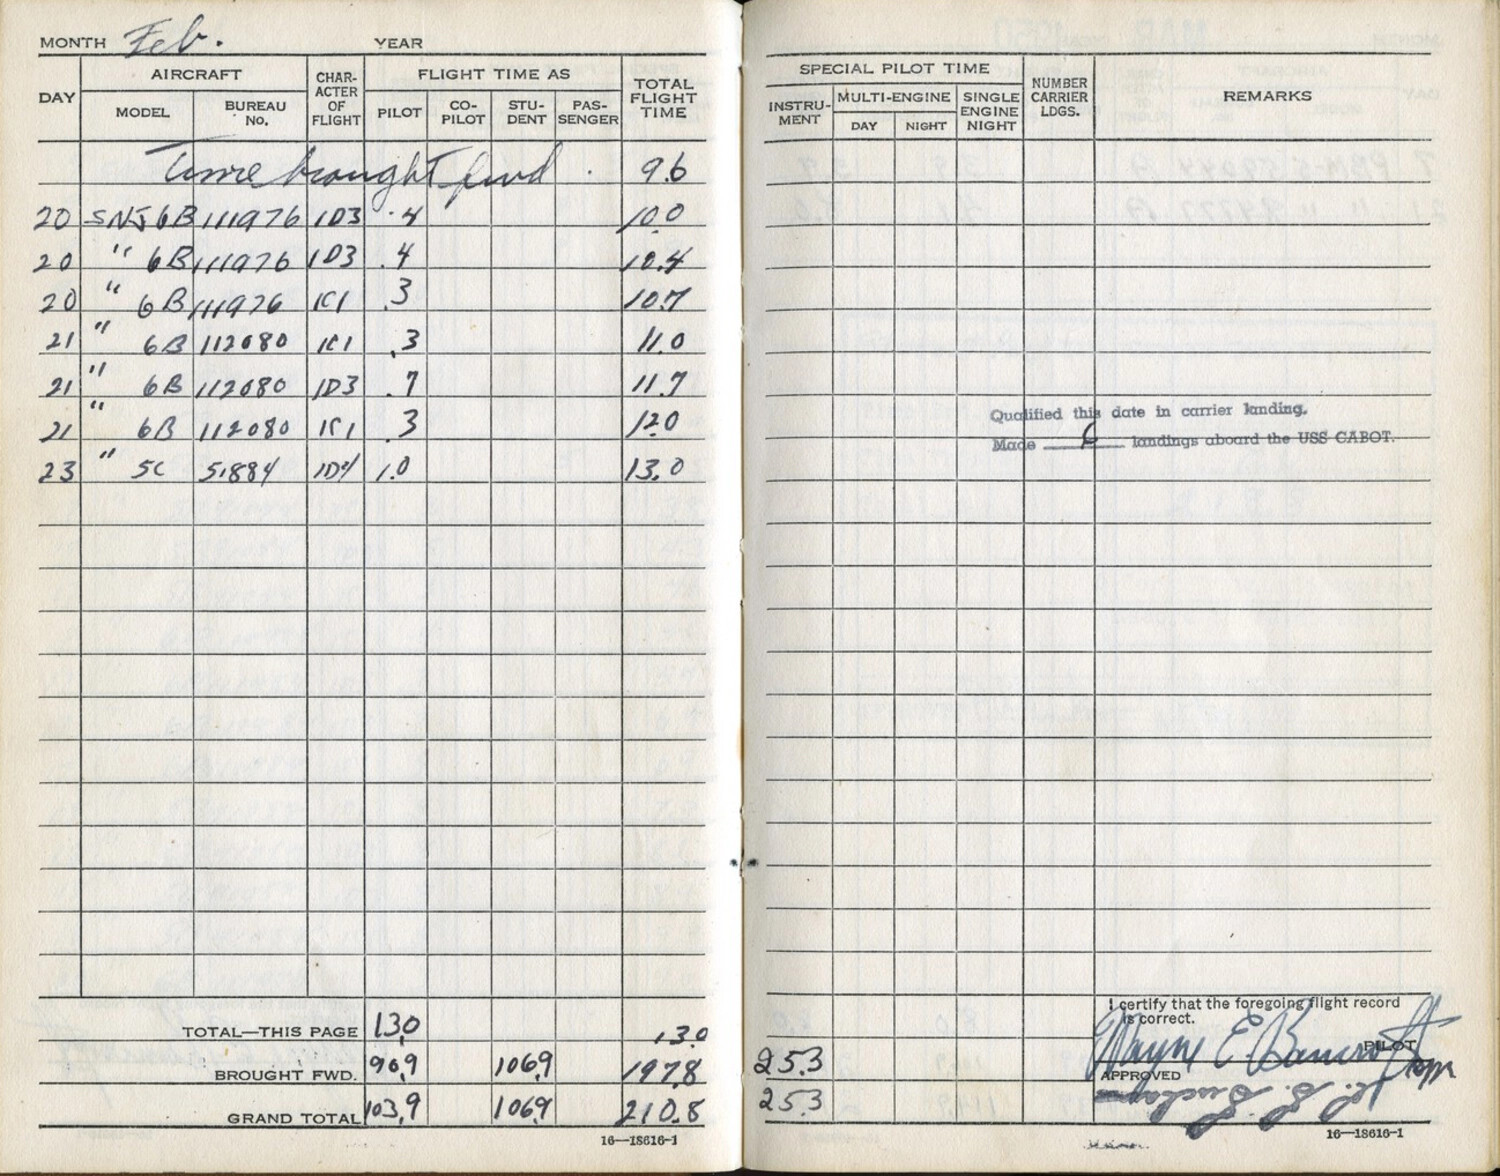 MONTH Feb. YEAR
DAY AIRCRAFT CHAR-ACTER OF FLIGHT FLIGHT TIME AS TOTAL FLIGHT TIME
MODEL BUREAU No. PILOT CO-PILOT STU-DENT PAS-SENGER
Time brought fwd . 9.6
20 SNJ 6B 111976 1D3 .4 10.0
20 " 6B 111976 1D3 .4 10.4
20 " 6B 111976 1C1 .3 10.7
21 " 6B 112080 1C1 .3 11.0
21 " 6B 112080 1D3 .7 11.7
21 " 6B 112080 1C1 .3 12.0
23 " 5C 51884 1D4 1.0 13.0
TOTAL—THIS PAGE 13.0 13.0
BROUGHT FWD. 90.9 106.9 197.8
GRAND TOTAL 103.9 106.9 210.8
16—18616-1
SPECIAL PILOT TIME NUMBER CARRIER LDGS. REMARKS
INSTRU-MENT MULTI-ENGINE SINGLE ENGINE NIGHT
DAY NIGHT
Qualified this date in carrier landing.
Made 6 landings aboard the USS CABOT.
I certify that the foregoing flight record
is correct.
Wayne E. Bancroft
PILOT
25.3
APPROVED
25.3
16—18616-1